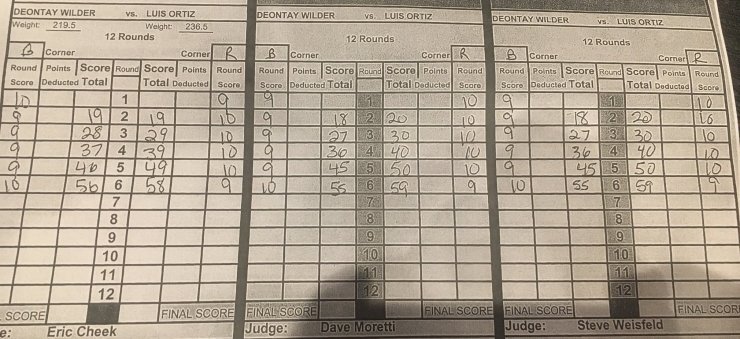 DEONTAY WILDER vs. LUIS ORTIZ
Weight: 219.5 Weight: 236.5
12 Rounds
B Corner Corner R
Round Points Score Round Score Points Round
Score Deducted Total Total Deducted Score
10 1 9
9 19 2 19 10
9 28 3 29 10
9 37 4 39 10
9 46 5 49 10
10 56 6 58 9
7
8
9
10
11
12
SCORE FINAL SCORE
e: Eric Cheek
DEONTAY WILDER vs. LUIS ORTIZ
12 Rounds
B Corner Corner R
Round Points Score Round Score Points Round
Score Deducted Total Total Deducted Score
9 1 10
9 18 2 20 10
9 27 3 30 10
9 36 4 40 10
9 45 5 50 10
10 55 6 59 9
7
8
9
10
11
12
FINAL SCORE FINAL SCORE
Judge: Dave Moretti
DEONTAY WILDER vs. LUIS ORTIZ
12 Rounds
B Corner Corner R
Round Points Score Round Score Points Round
Score Deducted Total Total Deducted Score
9 1 10
9 18 2 20 10
9 27 3 30 10
9 36 4 40 10
9 45 5 50 10
10 55 6 59 9
7
8
9
10
11
12
FINAL SCORE FINAL SCOR
Judge: Steve Weisfeld